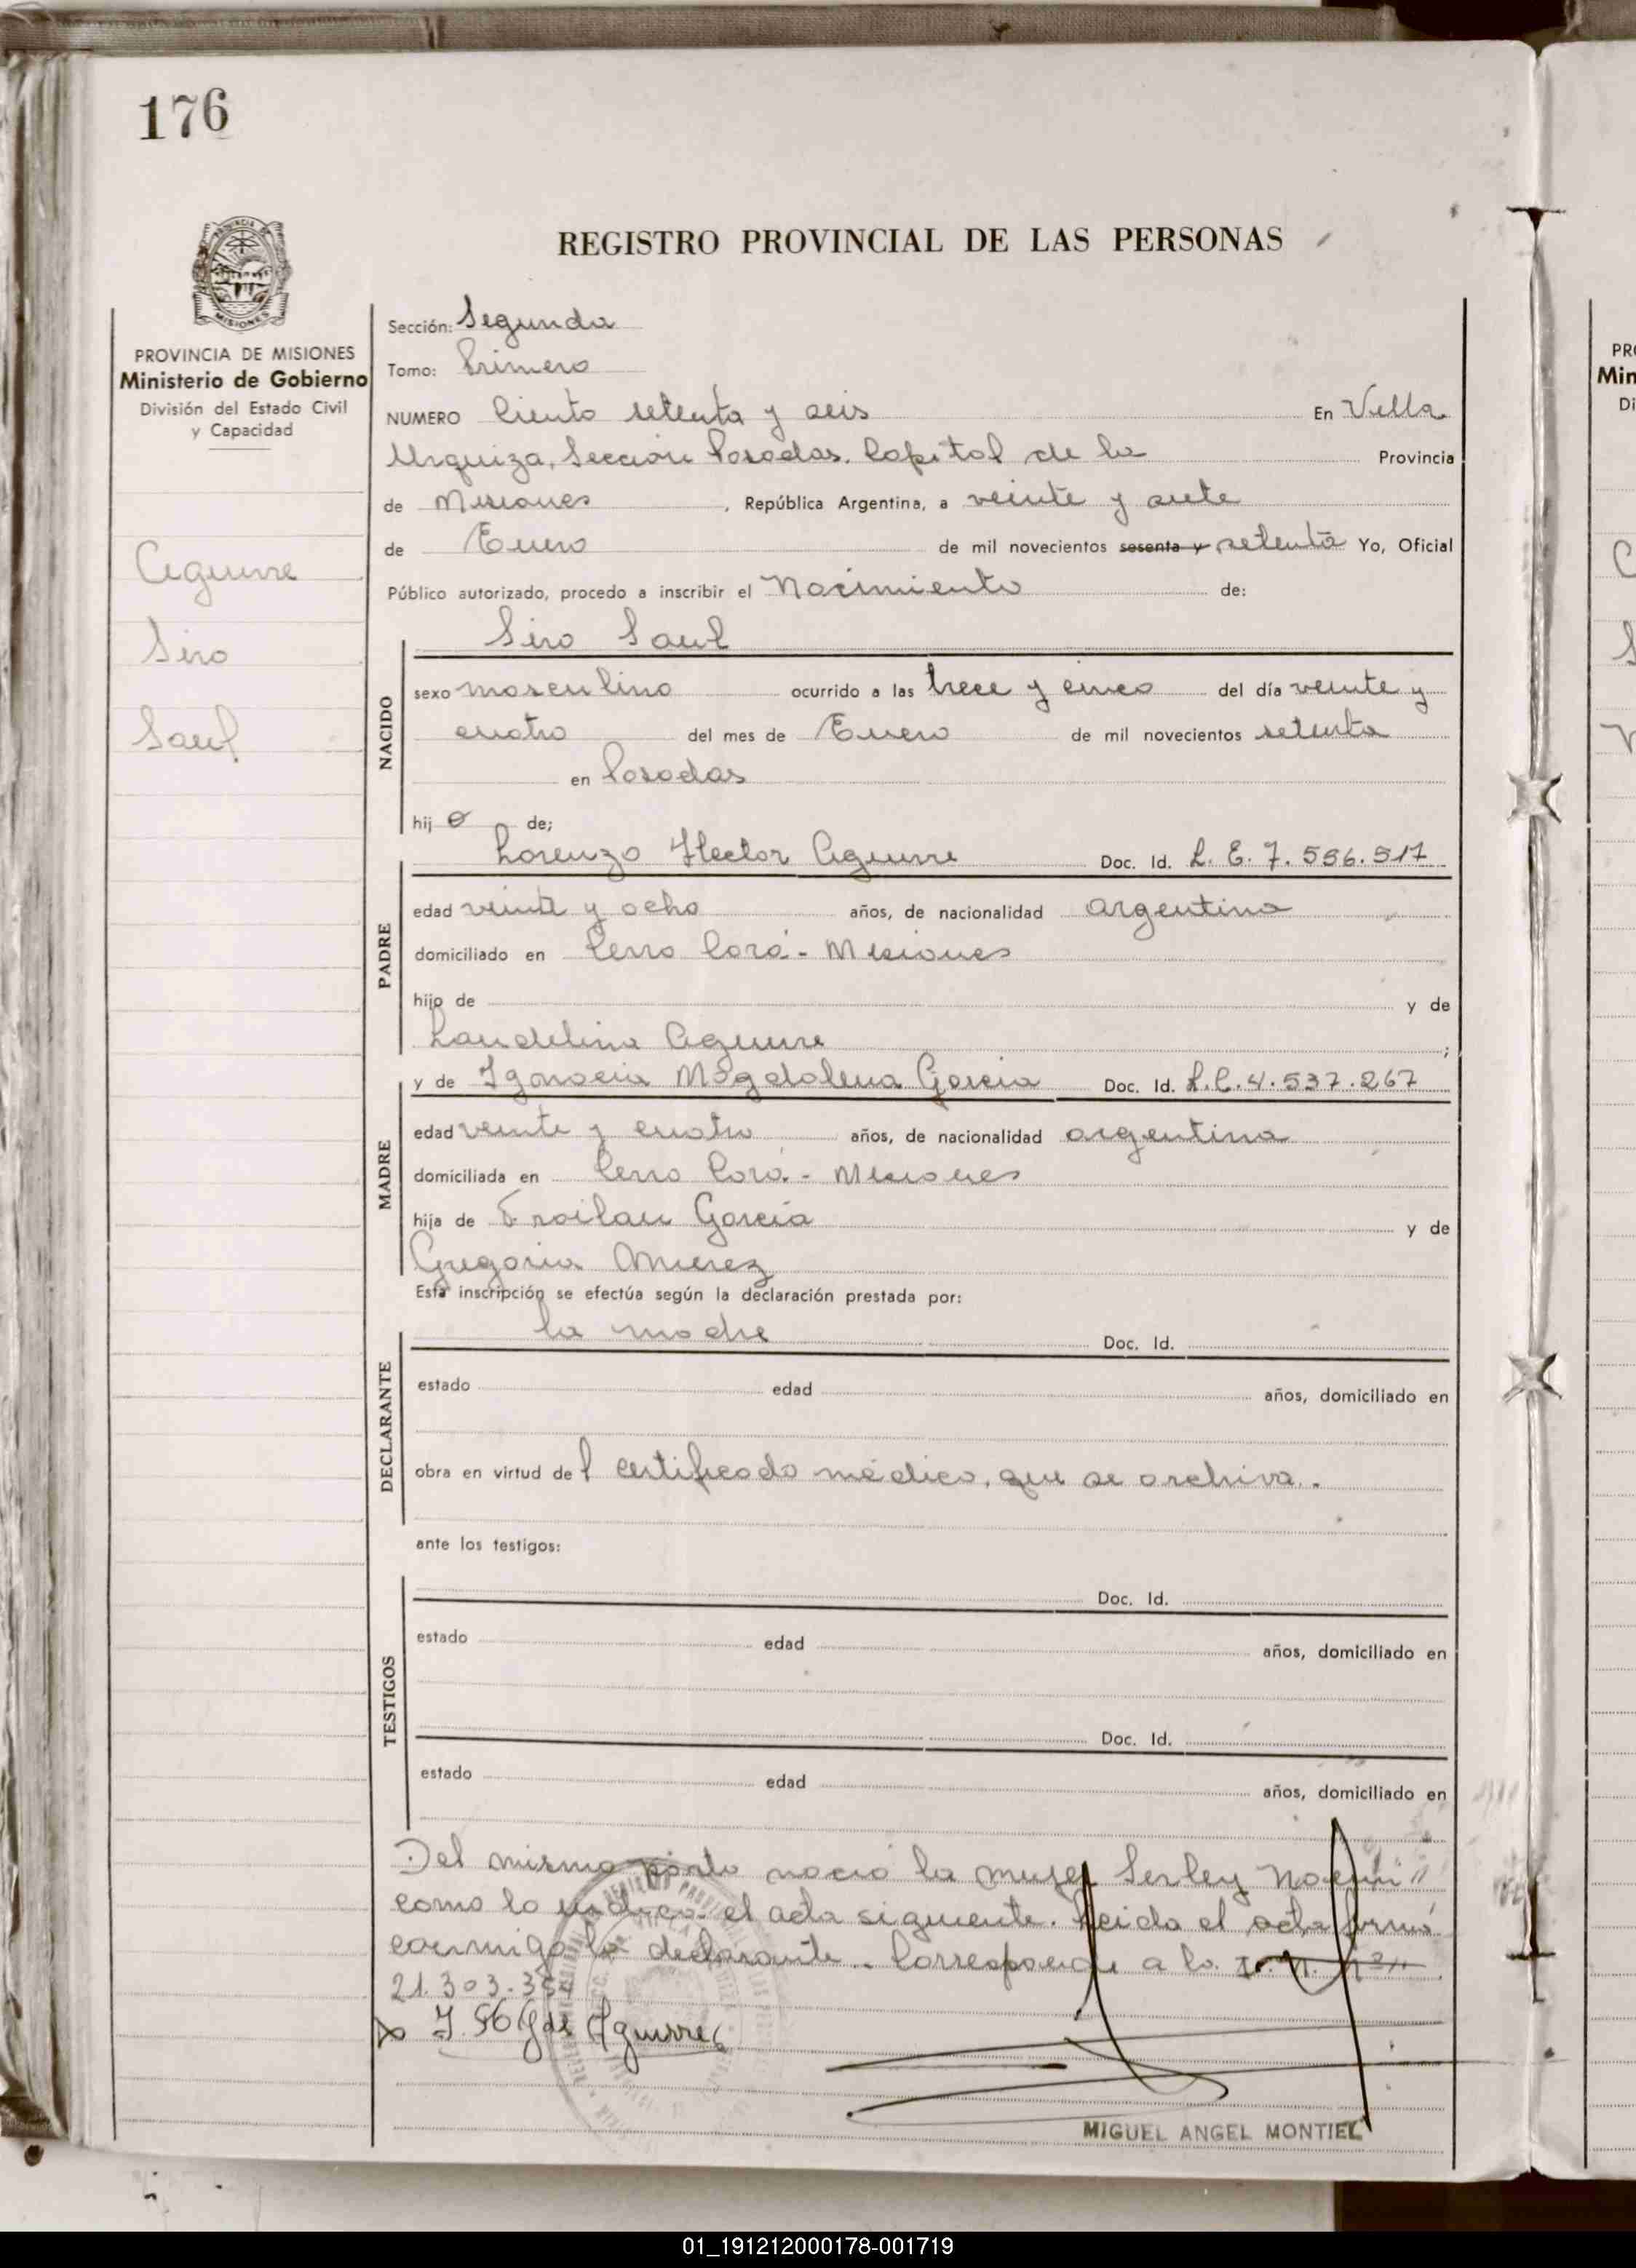 176
REGISTRO PROVINCIAL DE LAS PERSONAS
PROVINCIA DE MISIONES
Ministerio de Gobierno
División del Estado Civil
y Capacidad
Aguirre
Siro
Saul
Sección: Segunda
Tomo: Primero
NUMERO Ciento setenta y seis En Villa
Urquiza, Sección Posadas. Capital de la Provincia
de Misiones , República Argentina, a veinte y siete
de Enero de mil novecientos sesenta y setenta Yo, Oficial
Público autorizado, procedo a inscribir el Nacimiento de:
Siro Saul
NACIDO
sexo masculino ocurrido a las trece y cinco del día veinte y
cuatro del mes de Enero de mil novecientos setenta
en Posadas
hij o de;
Lorenzo Hector Aguirre Doc. Id. L. E. 7. 556.517
PADRE
edad veinte y ocho años, de nacionalidad argentino
domiciliado en Cerro Corá - Misiones
hijo de y de
Laudelina Aguirre ;
y de Ignacia Magdalena Garcia Doc. Id. L.C.4.537.267
MADRE
edad veinte y cuatro años, de nacionalidad argentina
domiciliada en Cerro Corá - Misiones
hija de Froilan Garcia y de
Gregoria
Esta inscripción se efectúa según la declaración prestada por:
la madre Doc. Id.
DECLARANTE
estado edad años, domiciliado en
obra en virtud del certificado médico, que se archiva.
ante los testigos:
Doc. Id.
TESTIGOS
estado edad años, domiciliado en
Doc. Id.
estado edad años, domiciliado en
Del mismo parto nació la mujer Serley Noemi
como lo indica el acta siguiente. Leida el acta firmó
conmigo la declarante. Corresponde a la
21.303.
Aguirre
MIGUEL ANGEL MONTIEL
01_191212000178-001719